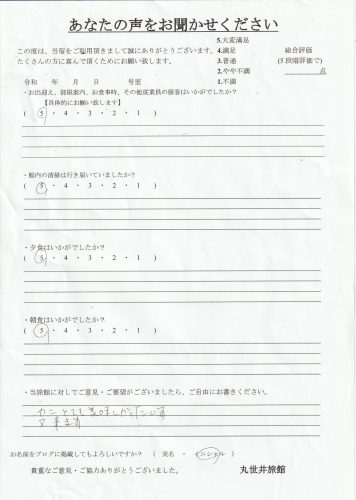 あなたの声をお聞かせください
この度は、当宿をご利用頂きまして誠にありがとうございます。
たくさんの方に喜んで頂くためにお願い致します。
5.大変満足
4.満足
3.普通
2.やや不満
1.不満
総合評価
(5段階評価で)
点
令和 年 月 日 号室
・お出迎え、部屋案内、お食事時、その他従業員の接客はいかがでしたか?
【具体的にお願い致します】
( 5 ・ 4 ・ 3 ・ 2 ・ 1 )
・館内の清掃は行き届いていましたか?
( 5 ・ 4 ・ 3 ・ 2 ・ 1 )
・夕食はいかがでしたか?
( 5 ・ 4 ・ 3 ・ 2 ・ 1 )
・朝食はいかがでしたか?
( 5 ・ 4 ・ 3 ・ 2 ・ 1 )
・当旅館に対してご意見・ご要望がございましたら、ご自由にお書きください。
カニとても美味しかったです
又来ます
お名前をブログに掲載してもよろしいですか? ( 実名 ・ イニシャル )
貴重なご意見・ご協力ありがとうございました。
丸世井旅館